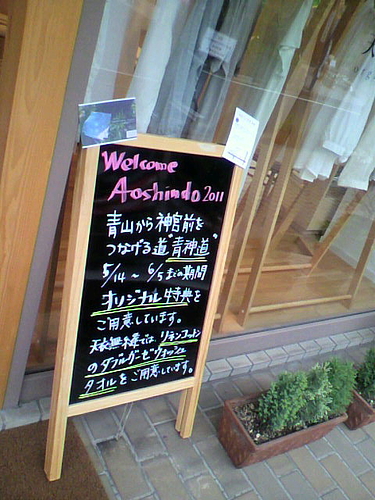 Welcome
Aoshindo 2011
青山から神宮前を
つなげる道"青神道"
5/14 ~ 6/5までの期間
オリジナル特典を
ご用意しています。
天衣無縫では、リネンコットン
のダブルガーゼウォッシュ
タオルをご用意しています。